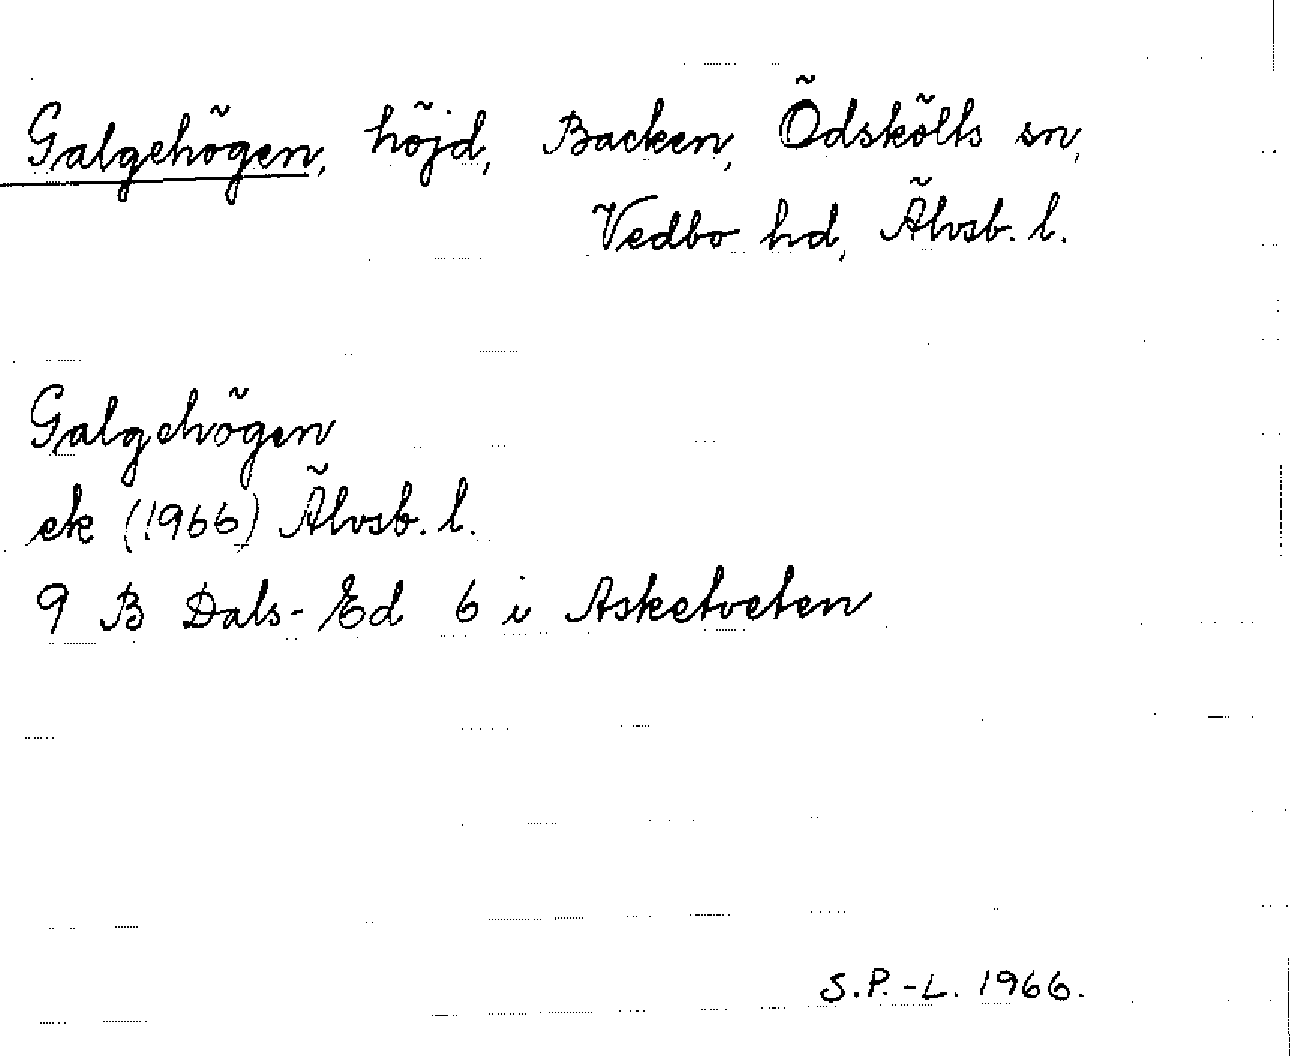 Galgehögen, höjd, Backen, Ödskölts sn,
Vedbo hd, Älvsb. l.
Galgehögen
ek (1966) Älvsb. l.
9 B Dals-Ed 6 i Asketveten
S.P.-L. 1966.